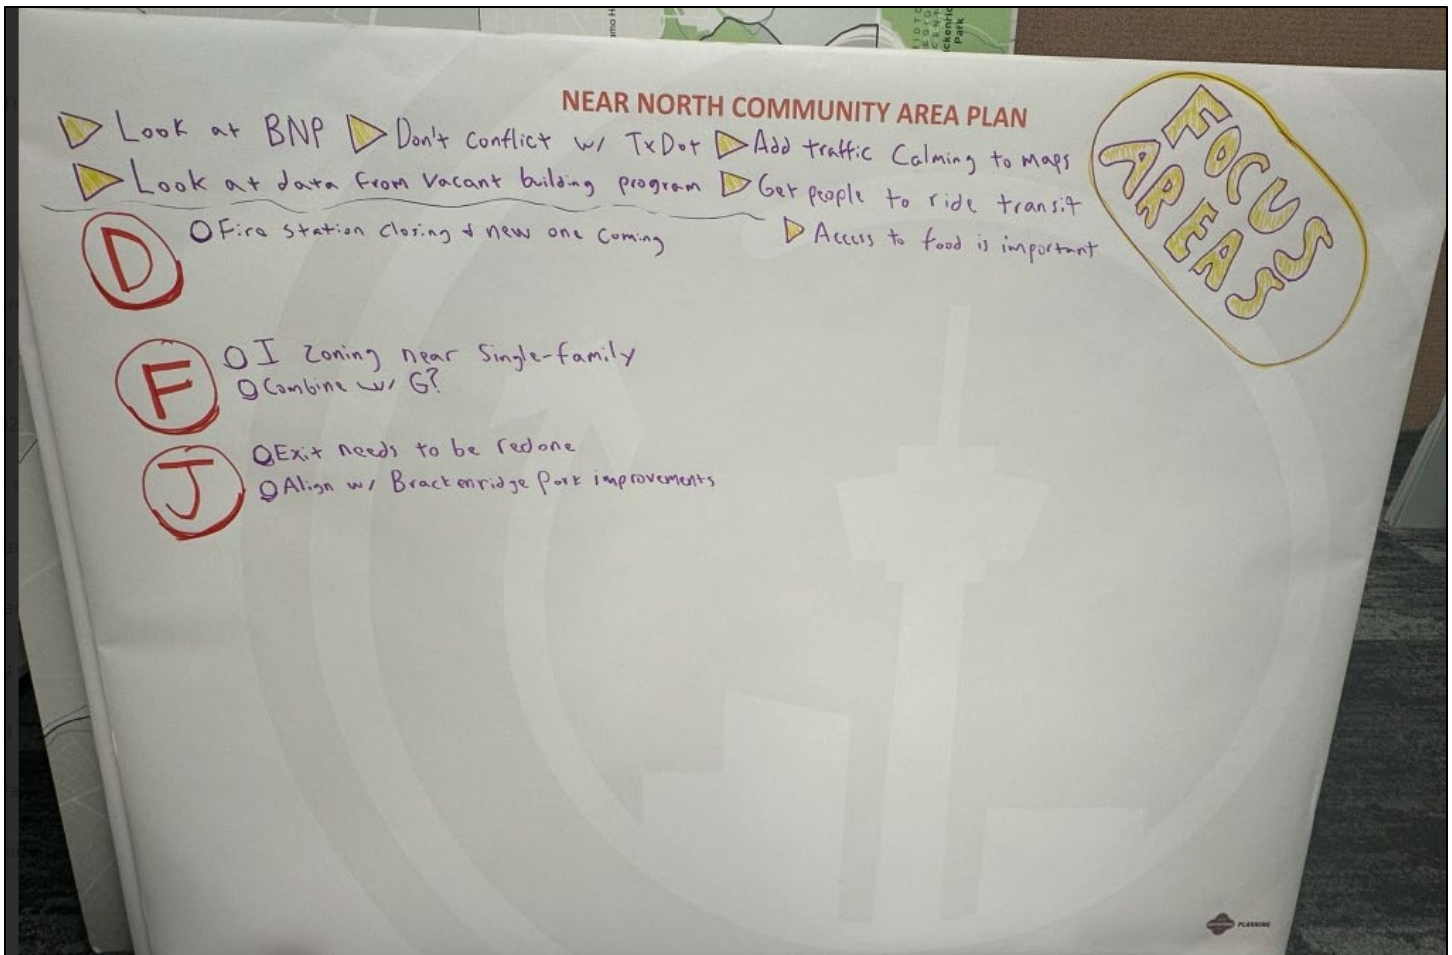 NEAR NORTH COMMUNITY AREA PLAN
FOCUS
AREAS
Look at BNP Don't Conflict w/ TxDot Add traffic Calming to maps
Look at data from vacant building program Get people to ride transit
Access to food is important
D
Fire station closing & new one coming
F
I zoning near Single-family
Combine w/ G?
J
Exit needs to be redone
Align w/ Brackenridge Park improvements
PLANNING
Park